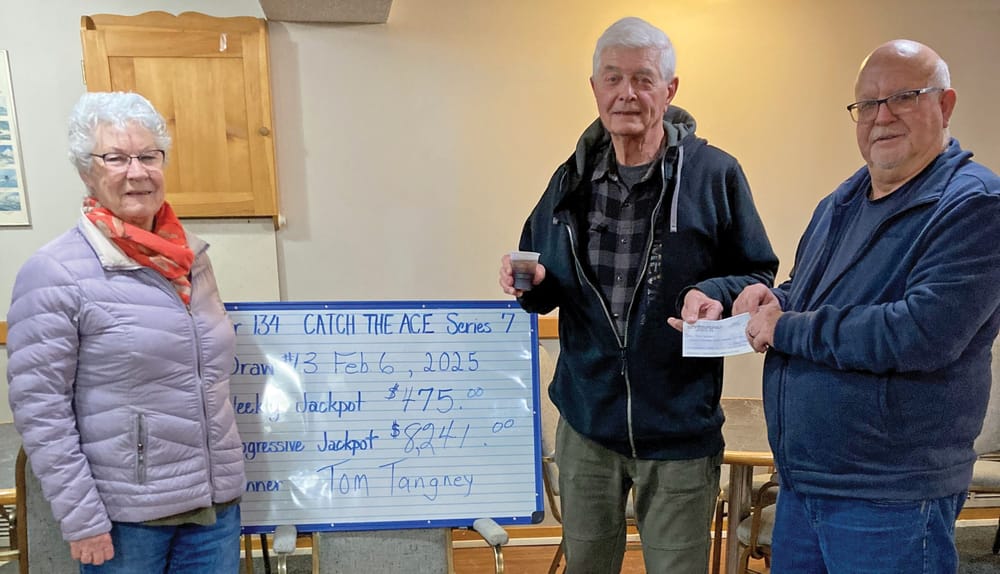 r 134 CATCH THE ACE Series 7
Draw #13 Feb 6, 2025
eekly Jackpot $475.00
ogressive Jackpot $8,241.00
nner Tom Tangney